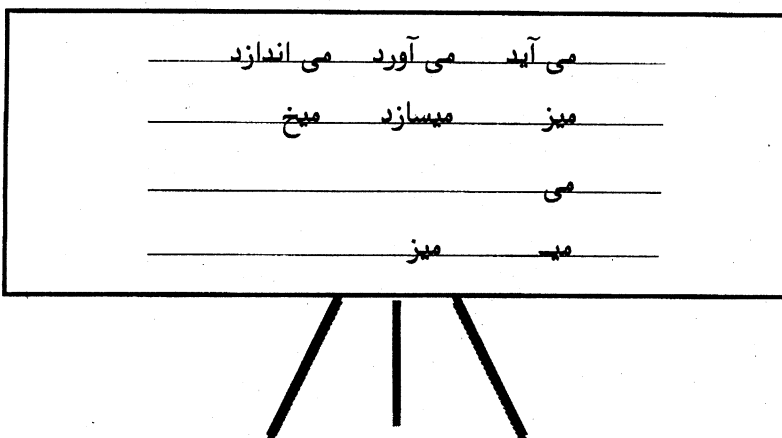 می آید می آورد می اندازد
میز میسازد میخ
می
میـ میز